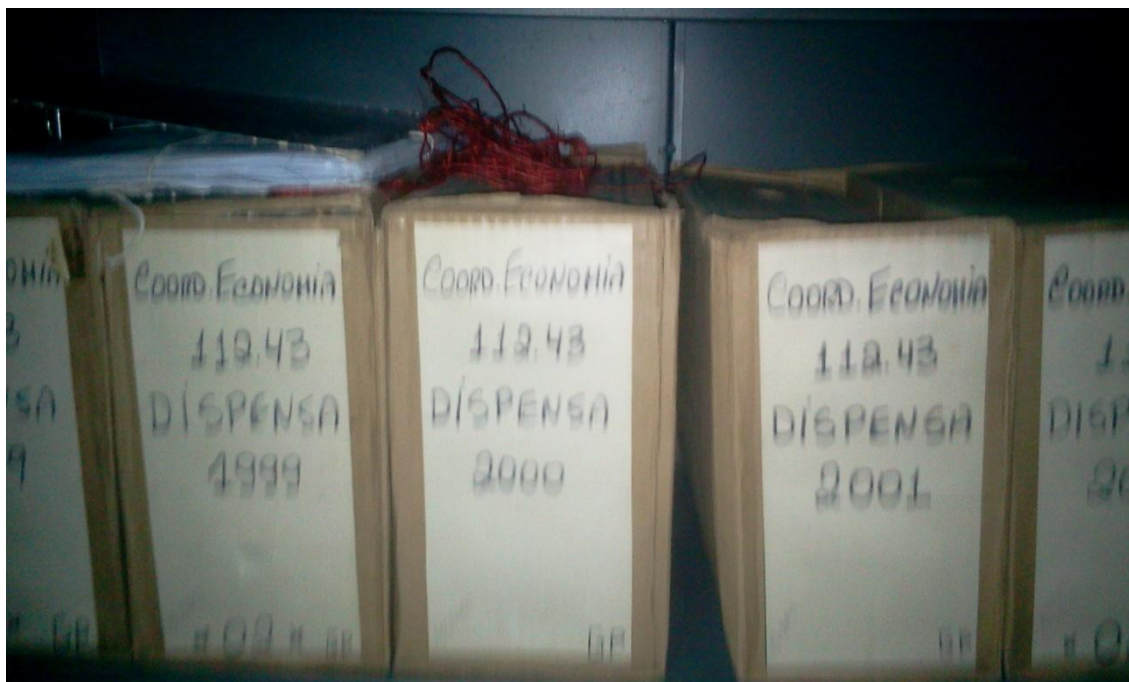 COORD. ECONOMIA
112.43
DISPENSA
1999
02 GP
COORD. ECONOMIA
112.43
DISPENSA
2000
GP
COORD. ECONOMIA
112.43
DISPENSA
2001
GP
COORD.